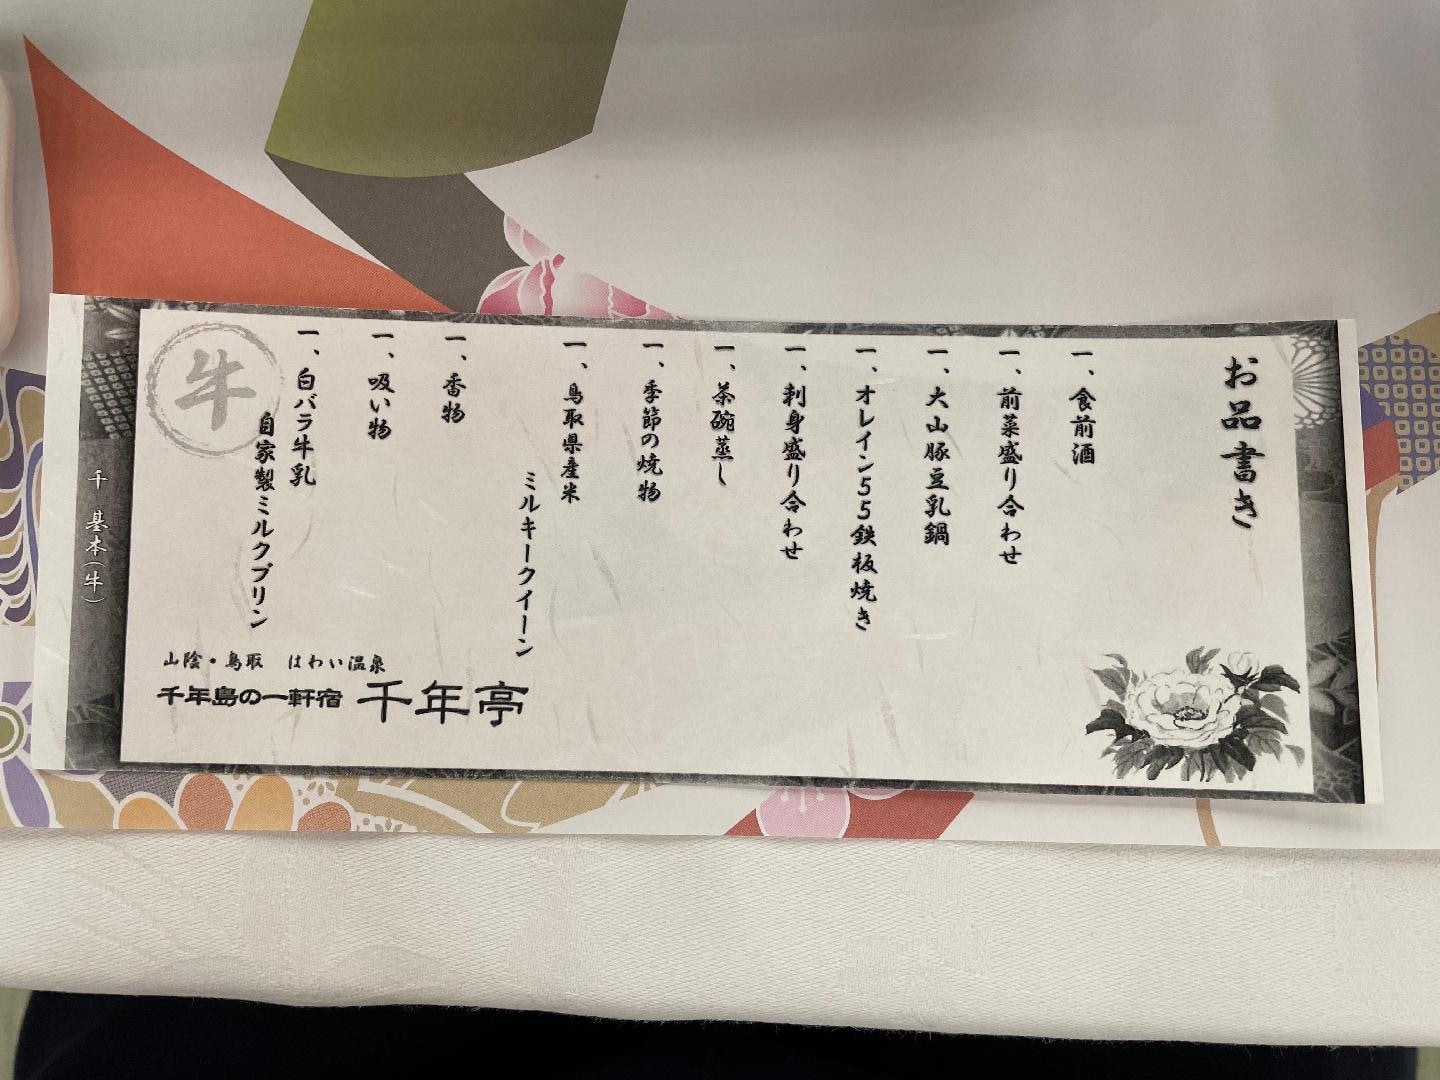 お品書き
一、食前酒
一、前菜盛り合わせ
一、大山豚豆乳鍋
一、オレイン55鉄板焼き
一、刺身盛り合わせ
一、茶碗蒸し
一、季節の焼物
一、鳥取県産米
ミルキークイーン
一、香物
一、吸い物
一、白バラ牛乳
自家製ミルクプリン
牛
山陰・鳥取 はわい温泉
千年島の一軒宿 千年亭
千 基本(牛)